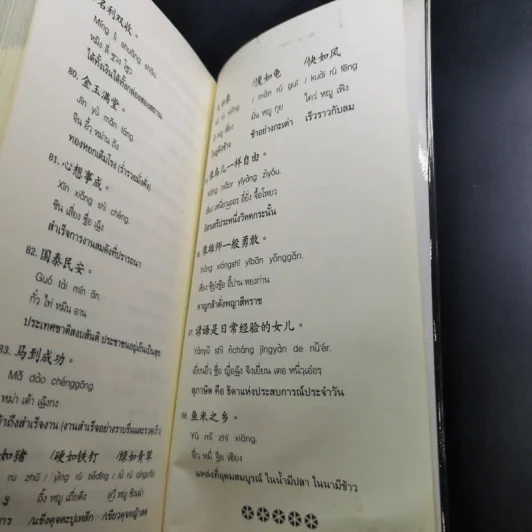 名利双收。
Míng lì shuāng shōu.
ได้ทั้งเงินได้ทั้งกล่องสองสถาน
80. 金玉满堂。
Jīn yù mǎn táng.
จิน อวี้ หม่าน ถัง
ทองหยกเต็มโรง (ร่ำรวยมั่งคั่ง)
81. 心想事成。
Xīn xiǎng shì chéng.
ซิน เสี่ยง ซื่อ เฉิง
สำเร็จการงานสมดังที่ปรารถนา
82. 国泰民安。
Guó tài mín ān.
กั๋ว ไท่ หมิน อาน
ประเทศชาติสงบสันติ ประชาชนอยู่เย็นเป็นสุข
83. 马到成功。
Mǎ dào chénggōng.
หม่า เต้า เฉิงกง
สำเร็จงาน (งานสำเร็จอย่างราบรื่นและรวดเร็ว
如猪 /硬如铁钉 /绿如青草
rú zhū / yìng rú tiědīng / lǜ rú qīngcǎo
อิ้ง หยู เถี่ยติง
/แข็งดุจตะปูเหล็ก /เขียวดุจหญ้าสด
/慢如龟 /快如风
/ màn rú guī / kuài rú fēng
มั่น หยู กุย ไคว่ หยู เฟิง
ช้าอย่างกะเต่า เร็วราวกับลม
像鸟儿一样自由。
niǎor yīyàng zìyóu.
อิสรเสรีประหนึ่งวิหคกระนั้น
像雄师一般勇敢。
Xiàng xióngshī yībān yǒnggǎn.
หาญกล้าดั่งพญาสีหราช
87. 谚语是日常经验的女儿。
Yànyǔ shì rìcháng jīngyàn de nǚ'ér.
สุภาษิต คือ ธิดาแห่งประสบการณ์ประจำวัน
88. 鱼米之乡。
Yú mǐ zhī xiāng.
อวี๋ หมี่ จือ เซียง
แหล่งที่อุดมสมบูรณ์ ในน้ำมีปลา ในนามีข้าว